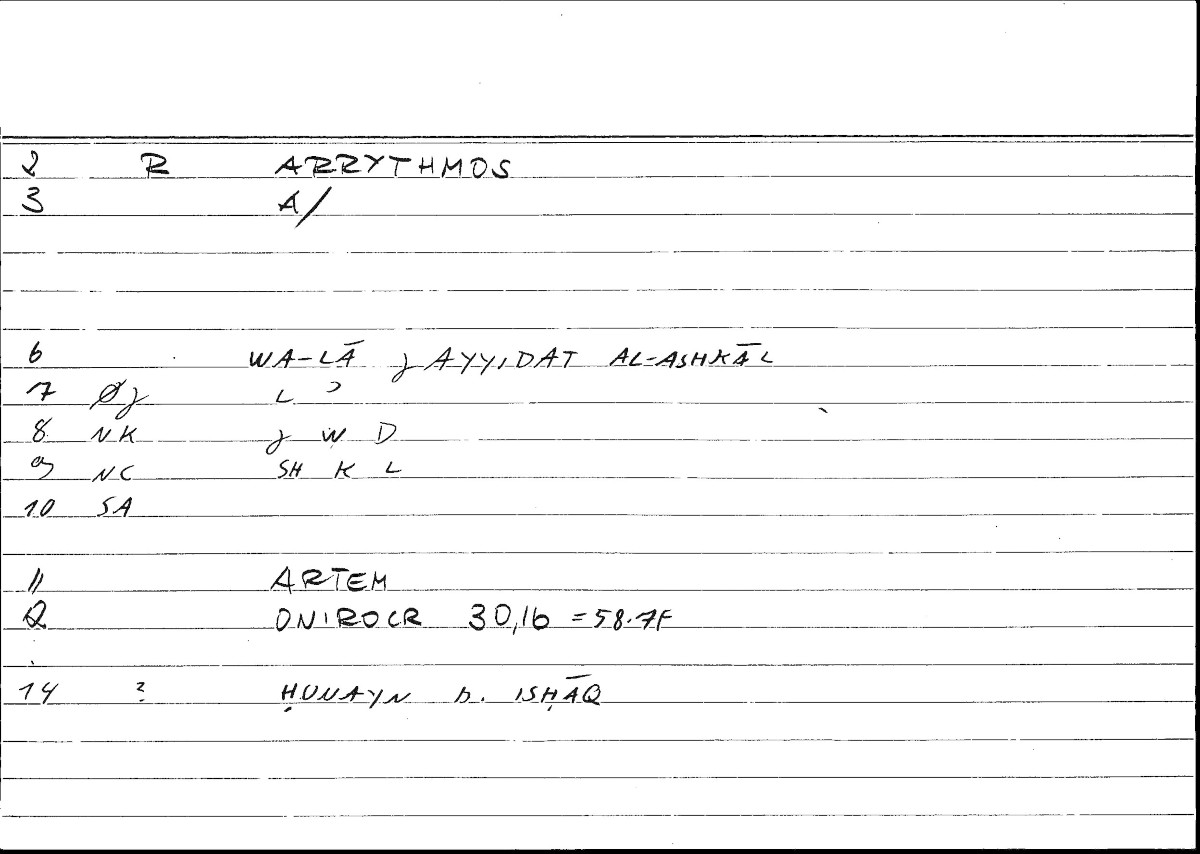 2 R ARRYTHMOS
3 A/
6 WA-LĀ JAYYIDAT AL-ASHKĀL
7 ØJ L ʾ
8 NK J W D
9 NC SH K L
10 SA
11 ARTEM
12 ONIROCR 30,16 = 58.7F
14 ? ḤUNAYN b. ISḤĀQ